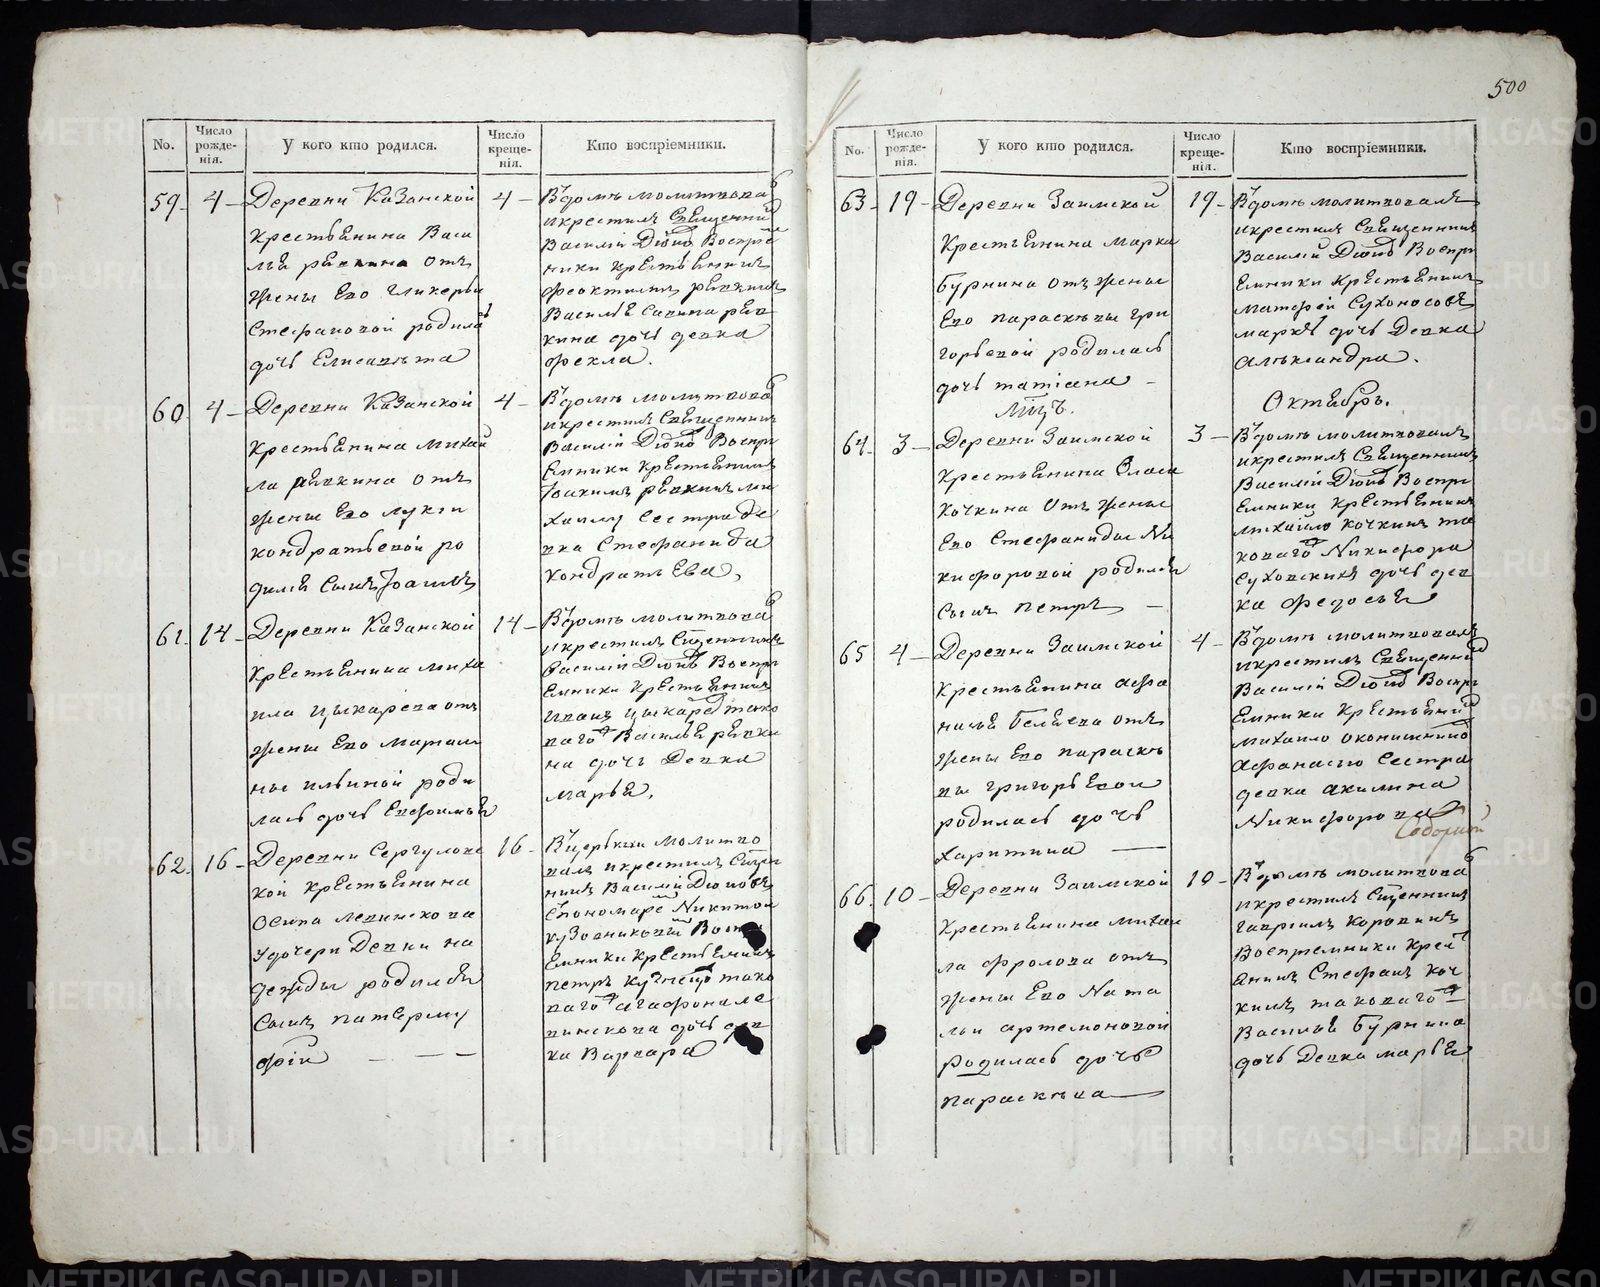 500
No. Число рожденія. У кого кто родился. Число крещенія. Кто воспріемники.
59. 4 Деревни Казанской
крестьянина Васи
лья рявкина отъ
жены Его Гликерьи
Стефановой родила
дочь Елисавѣта
4 Въ домѣ молитвова
и крестилъ Священни
Василій Воспріе
ники крестьянинъ
феоктистъ рявкинъ
Василья Савина ряв
кина дочь девка
Фекла.
60. 4 Деревни Казанской
крестьянина Михаи
ла рявкина отъ
жены Его лукіи
кондратьевой ро
дился сынъ Іоакимъ
4 Въ домѣ молитвова
и крестилъ Священникъ
Василій Воспрі
емники крестьянинъ
Іоакимъ рявкинъ ми
хаилу сестра де
вка Стефанида
кондратьева,
61. 14 Деревни Казанской
крестьянина миха
ила цыкарева отъ
жены Его марѳы
ильиной роди
лась дочь Евфимья
14 Въ домѣ молитвова
и крестилъ Сщенникъ
Василій Воспрі
емники крестьянинъ
иванъ цыкарев тако
ваго Василья рявки
на дочь Девка
марья.
62. 16 Деревни Сергуловс
кой крестьянина
Осипа левинскова
у дочери Девки на
дежды родился
сынъ патермy
фій
16 Въ церькви молитво
валъ и крестилъ
никъ Василій
Спономаре Никитой
кузовниковы Воспрі
емники крестьянинъ
петръ кузнецо тако
ваго агафона ле
винскова дочь дев
ка Варвара
No. Число рожденія. У кого кто родился. Число крещенія. Кто воспріемники.
63. 19 Деревни Заимской
крестьянина марка
бурнина отъ жены
Его параскевы гри
горьевой родилась
дочь татіана
19 Въ домѣ молитвовалъ
и крестилъ Священникъ
Василій Воспрі
емники крестьянинъ
матфей Сухоносовъ
марка дочь Девка
александра.
Мцъ. Октябрь.
64. 3 Деревни Заимской
крестьянина Власа
кочкина отъ жены
Его Стефаниды Ни
кифоровой родился
сынъ петръ
3 Въ домѣ молитвовалъ
и крестилъ Священникъ
Василій Воспрі
емники крестьянинъ
михайло кочкинъ та
коваго Никифора
Суховскихъ дочь дев
ка федосья
65 4 Деревни Заимской
крестьянина афа
насья беляева отъ
жены Его параске
вы григорьевои
родилась дочь
харитина
4 Въ домѣ молитвовалъ
и крестилъ Священни
Василій Воспрі
емники крестьянин
михаило
афанасию сестра
девка акилина
Никифорова
Соборной
66. 10 Деревни Заимской
крестьянина михаи
ла фролова отъ
жены Его Ната
льи артемоновой
Родилась дочь
параскева
10 Въ домѣ молитвова
и крестилъ Сщенникъ
гавріилъ коровинъ
Воспремники крест
янинъ Стефанъ коч
кинъ таковаго
Василья бурнина
дочь Девка марья